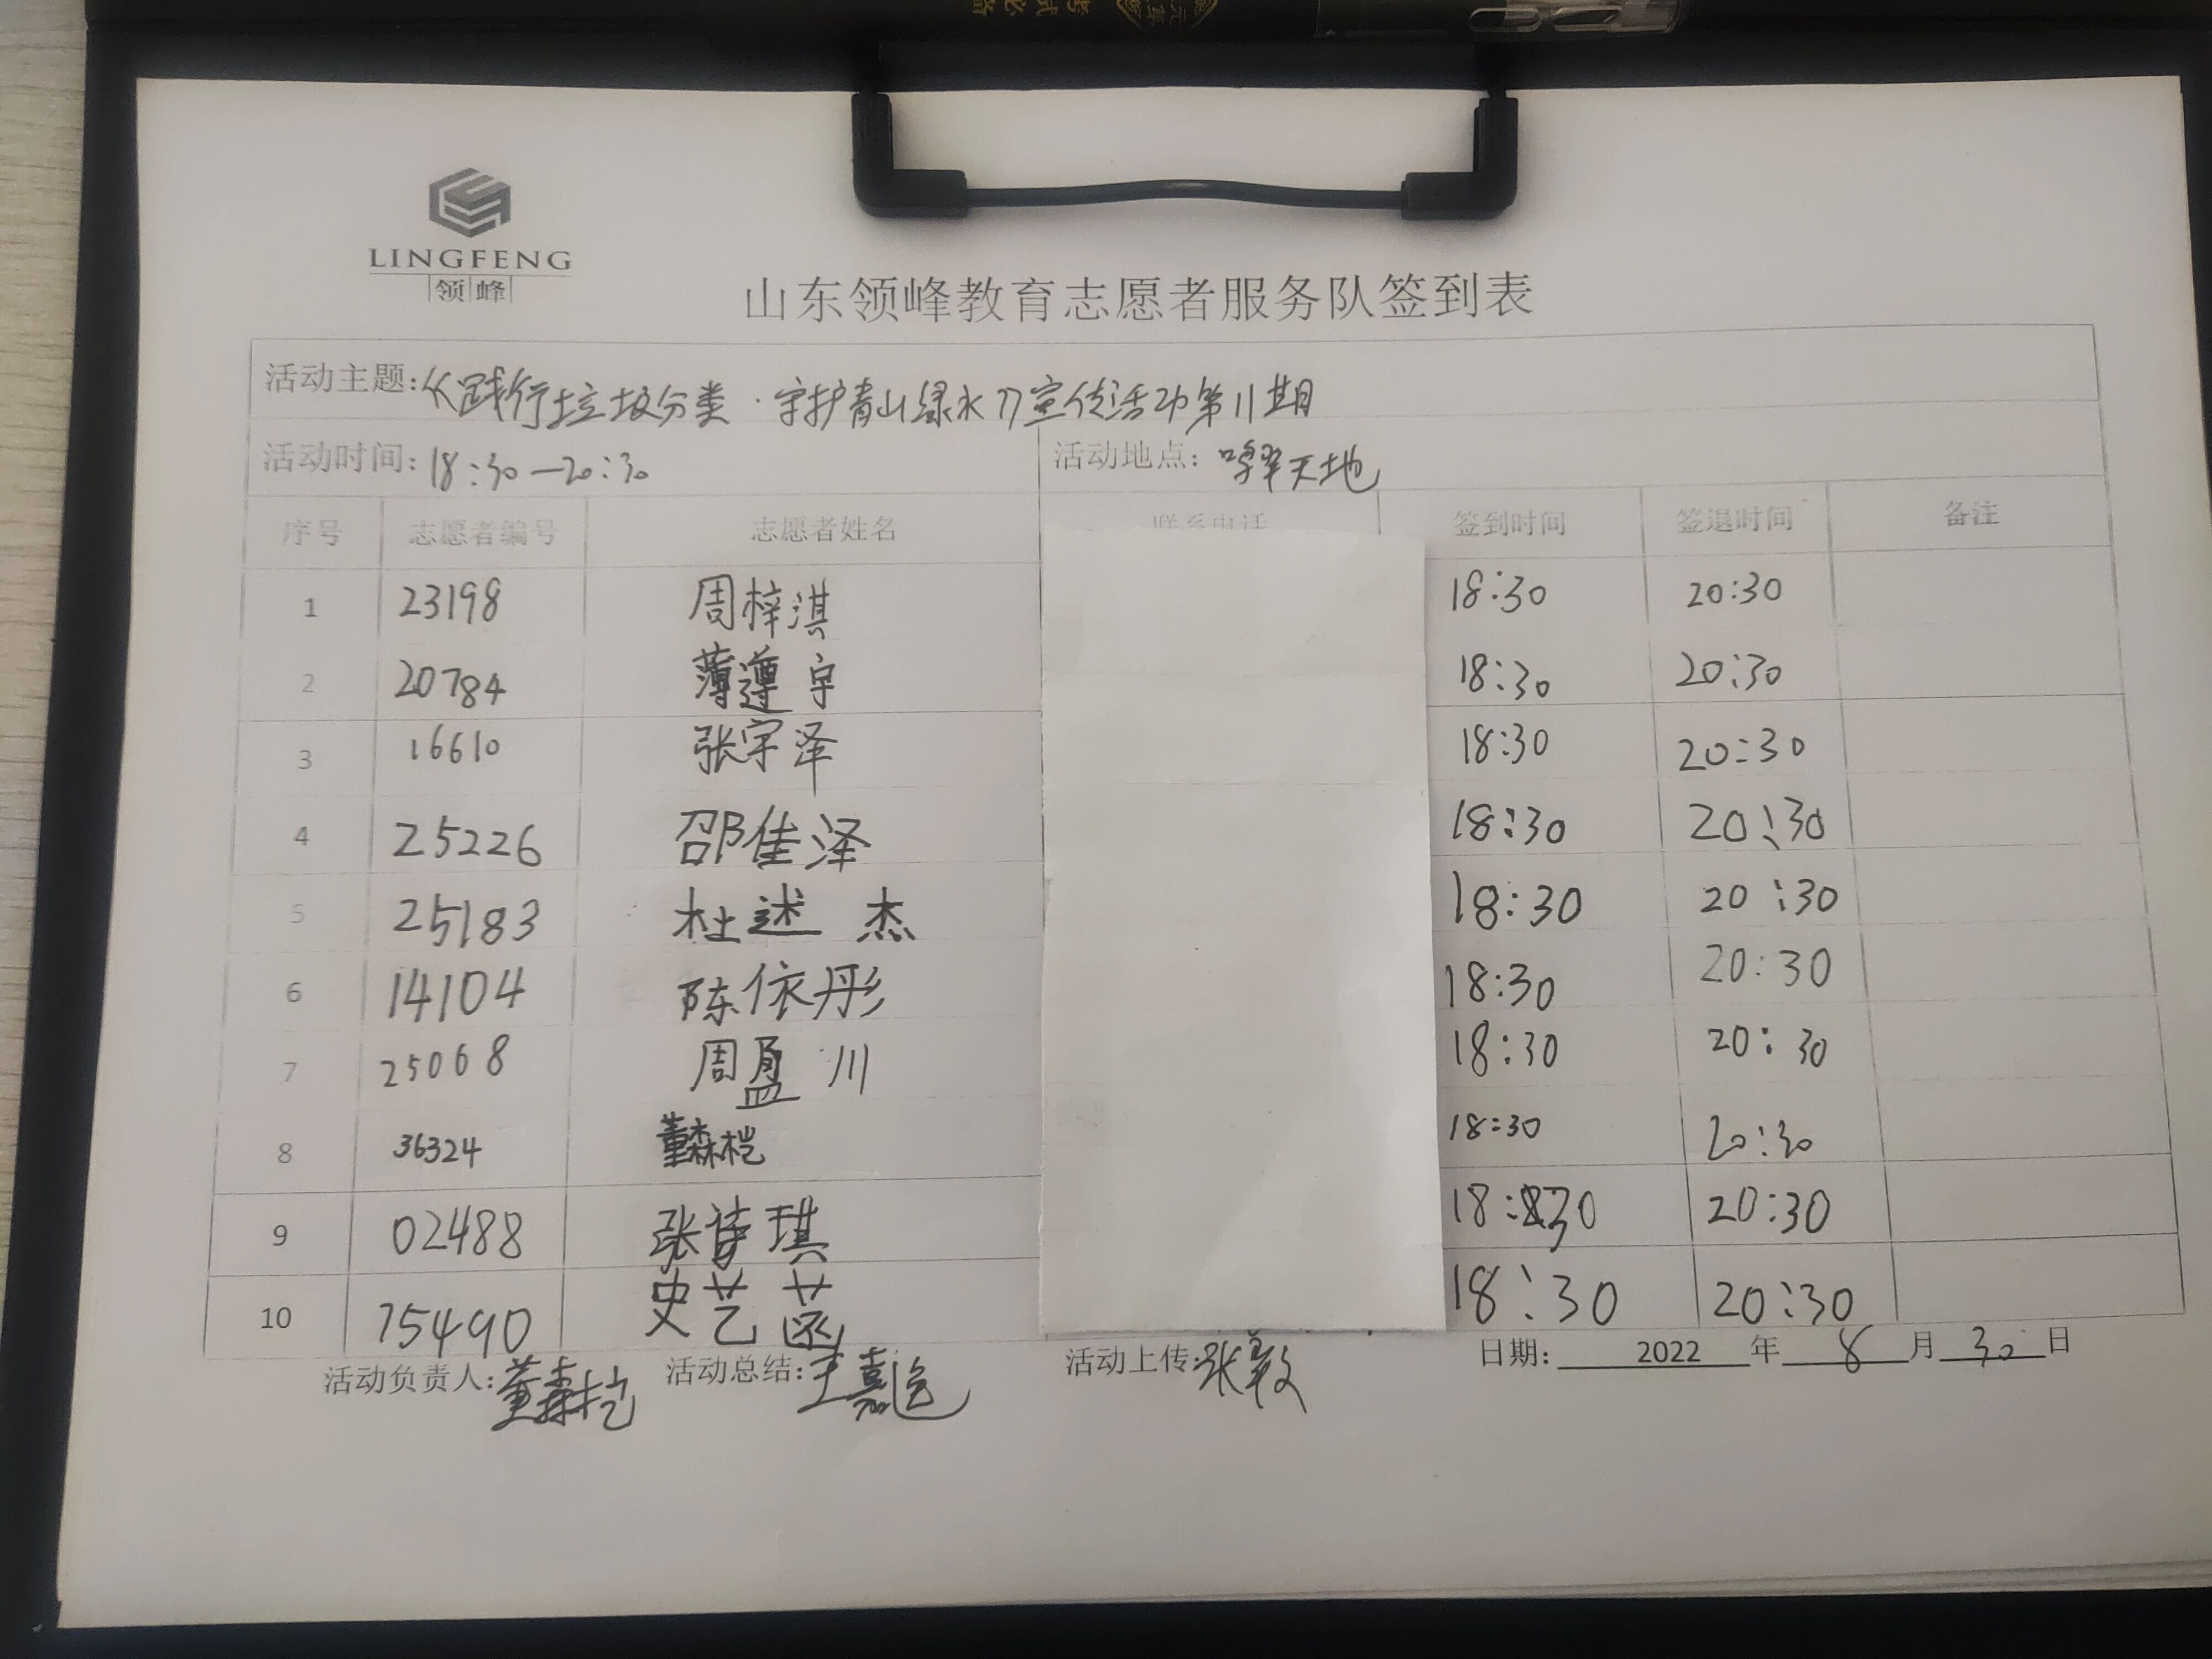 LINGFENG
领峰
山东领峰教育志愿者服务队签到表
活动主题:《践行垃圾分类·守护青山绿水》宣传活动第11期
活动时间:18:30—20:30 活动地点: 天地
序号 志愿者编号 志愿者姓名 联系电话 签到时间 签退时间 备注
1 23198 周梓淇 18:30 20:30
2 20784 薄遵宇 18:30 20:30
3 16610 张宇泽 18:30 20:30
4 25226 邵佳泽 18:30 20:30
5 25183 杜述杰 18:30 20:30
6 14104 陈依彤 18:30 20:30
7 25068 周盈川 18:30 20:30
8 36324 董森桤 18:30 20:30
9 02488 张诗琪 18:30 20:30
10 75490 史艺菡 18:30 20:30
活动负责人:董森桤 活动总结:王嘉 活动上传:张敏 日期: 2022 年 8 月 30 日